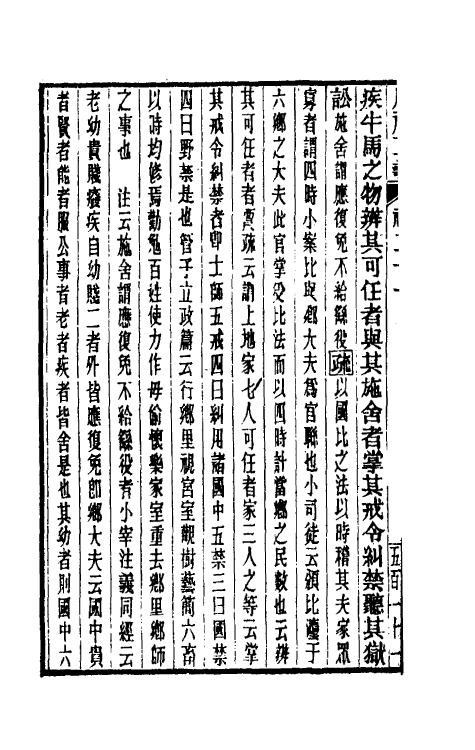 疾牛馬之物辨其可任者與其施舍者掌其戒令糾禁聽其獄
訟施舍謂應復免不給繇役疏以國比之法以時稽其夫家眾
寡者謂四時小案比與鄉大夫爲官聯也小司徒云頒比灋于
六鄉之大夫此官掌役比法而以四時計當鄉之民數也云辨
其可任者者賈疏云謂上地家七人可任者家三人之等云掌
其戒令糾禁者卽士師五戒四曰糾用諸國中五禁三曰國禁
四曰野禁是也管子立政篇云行鄉里視宮室觀樹藝簡六畜
以時均修焉勸勉百姓使力作毋偷懷樂家室重去鄉里鄉師
之事也 注云施舍謂應復免不給繇役者小宰注義同經云
老幼貴賤癈疾自幼賤二者外皆應復免卽鄉大夫云國中貴
者賢者能者服公事者老者疾者皆舍是也其幼者則國中六